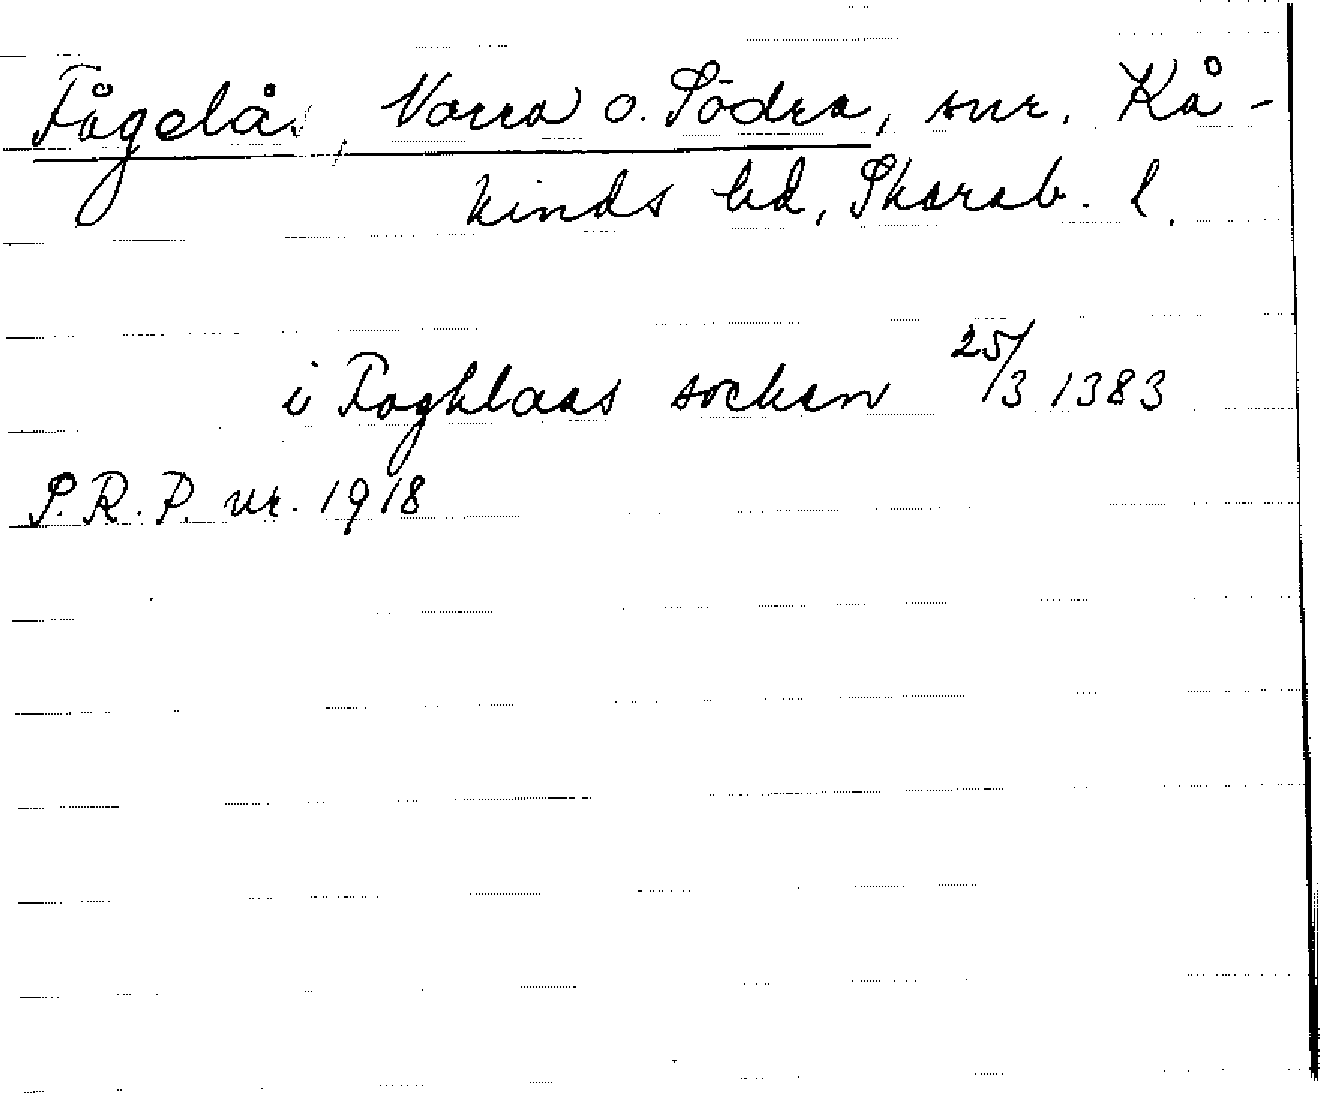 Fågelås, Norra o. Södra, snr. Kå-
kinds hd, Skarab. l.
i Foghlaas socken 25/3 1383
S.R.P. nr. 1918